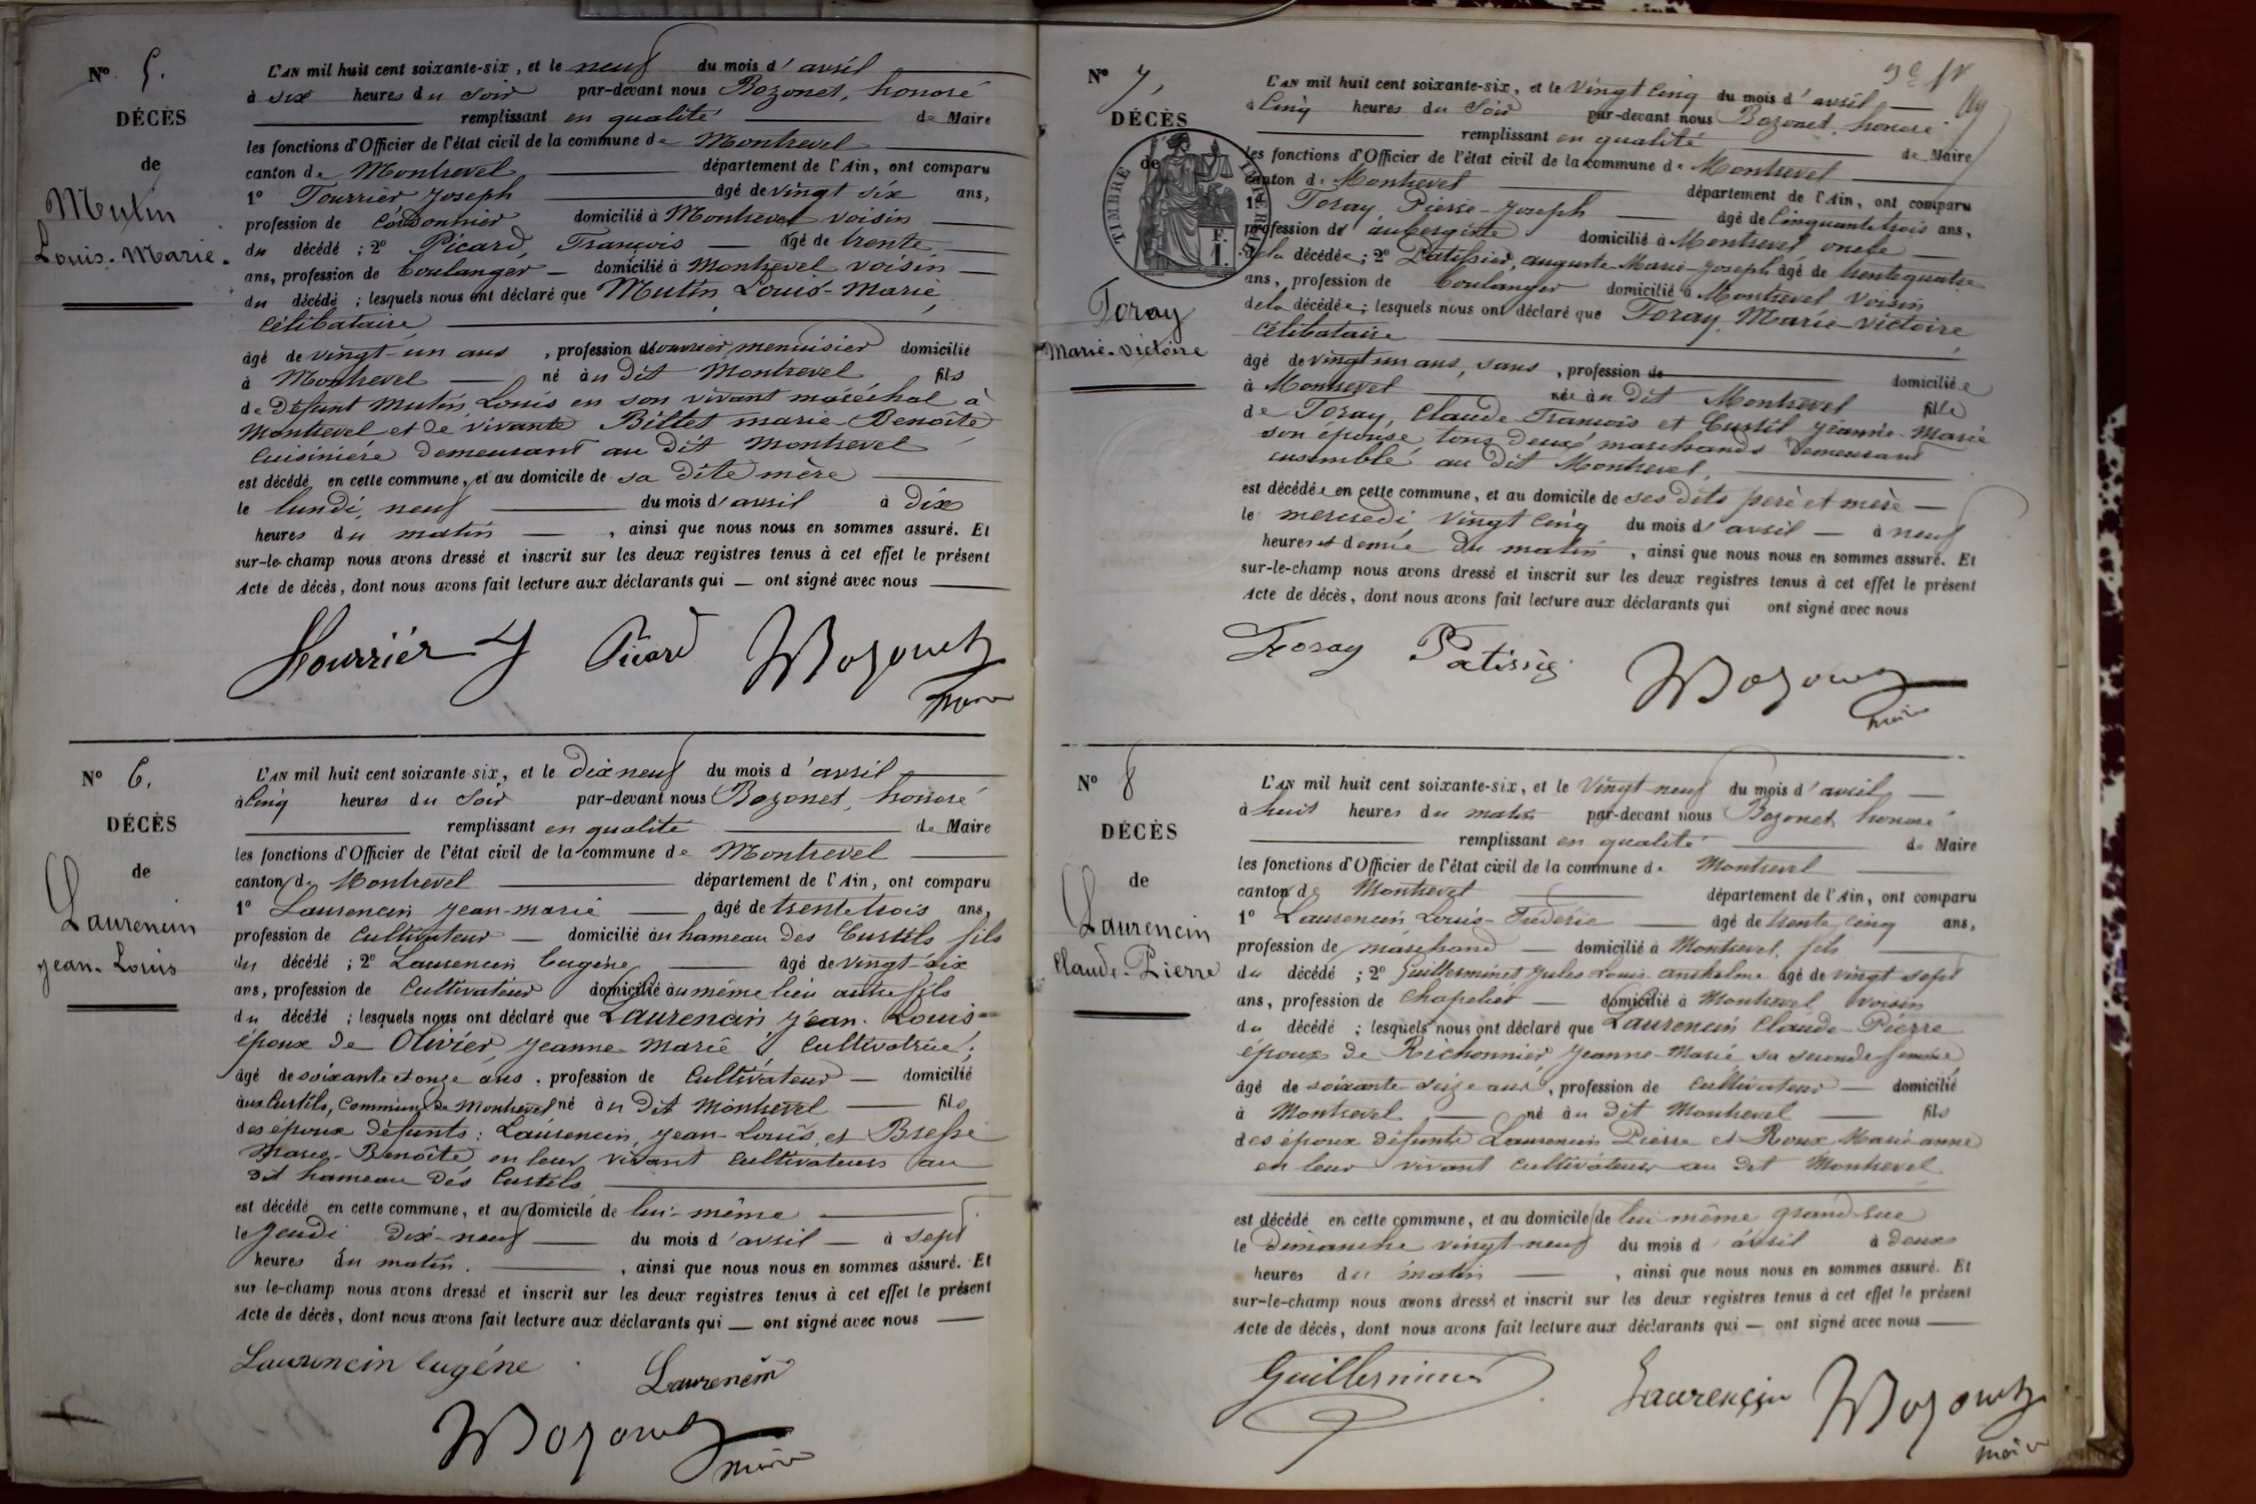 N° 5.
DÉCÈS
de
Mutin
Louis-Marie.
L'AN mil huit cent soixante-six, et le neuf du mois d'avril
à six heures du soir par-devant nous Bozonet, honoré
remplissant en qualité de Maire
les fonctions d'Officier de l'état civil de la commune de Montrevel
canton de Montrevel département de l'Ain, ont comparu
1° Fourrier Joseph âgé de vingt six ans,
profession de Cordonnier domicilié à Montrevel voisin
du décédé ; 2° Picard, François âgé de trente
ans, profession de boulanger domicilié à Montrevel voisin
du décédé ; lesquels nous ont déclaré que Mutin, Louis-Marie,
célibataire
âgé de vingt-un ans, profession d'ouvrier menuisier domicilié
à Montrevel né au dit Montrevel fils
de défunt Mutin Louis en son vivant maréchal à
Montrevel et de vivante Billet marie Benoîte
Cuisinière demeurant au dit Montrevel
est décédé en cette commune, et au domicile de sa dite mère
le lundi, neuf du mois d'avril à dix
heures du matin, ainsi que nous nous en sommes assuré. Et
sur-le-champ nous avons dressé et inscrit sur les deux registres tenus à cet effet le présent
Acte de décès, dont nous avons fait lecture aux déclarants qui ont signé avec nous
Fourrier J Picard Bozonet
maire
N° 6.
DÉCÈS
de
Laurencin
Jean-Louis
L'AN mil huit cent soixante-six, et le dix neuf du mois d'avril
à Cinq heures du Soir par-devant nous Bozonet, honoré
remplissant en qualité de Maire
les fonctions d'Officier de l'état civil de la commune de Montrevel
canton de Montrevel département de l'Ain, ont comparu
1° Laurencin Jean-marie âgé de trente trois ans,
profession de Cultivateur domicilié au hameau des Curtils fils
du décédé ; 2° Laurencin Eugène âgé de vingt-six
ans, profession de Cultivateur domicilié au même lieu autre fils
du décédé ; lesquels nous ont déclaré que Laurencin Jean-Louis
époux de Olivier, Jeanne Marie, Cultivatrice ;
âgé de soixante et onze ans, profession de Cultivateur domicilié
aux Curtils, Commune de Montrevel né au dit Montrevel fils
des époux défunts : Laurencin, Jean-Louis, et Bresse
Marie-Benoîte en leur vivant Cultivateurs au
dit hameau des Curtils
est décédé en cette commune, et au domicile de lui-même
le Jeudi dix-neuf du mois d'avril à sept
heures du matin, ainsi que nous nous en sommes assuré. Et
sur-le-champ nous avons dressé et inscrit sur les deux registres tenus à cet effet le présent
Acte de décès, dont nous avons fait lecture aux déclarants qui ont signé avec nous
Laurencin Eugéne Laurencin
Bozonet
maire
N° 7,
DÉCÈS
de
TIMBRE IMPÉRIAL
F. 1.
Foray
Marie-victoire
L'AN mil huit cent soixante-six, et le Vingt Cinq du mois d'avril
à Cinq heures du Soir par-devant nous Bozonet, honoré
remplissant en qualité de Maire
les fonctions d'Officier de l'état civil de la commune de Montrevel
canton de Montrevel département de l'Ain, ont comparu
1° Foray, Pierre-Joseph âgé de Cinquante trois ans,
profession d'aubergiste domicilié à Montrevel oncle
de la décédée ; 2° Patissier, auguste Marie-Joseph âgé de trente quatre
ans, profession de boulanger domicilié à Montrevel Voisin
de la décédée ; lesquels nous ont déclaré que Foray, Marie-victoire
Célibataire
âgé de vingt un ans, sans, profession de domiciliée
à Montrevel née au dit Montrevel fille
de Foray, Claude-François et Curtil Jeanne-Marie
son épouse tous deux marchands Demeurant
ensemble au dit Montrevel,
est décédée en cette commune, et au domicile de ses dits père et mère
le mercredi Vingt Cinq du mois d'avril à neuf
heures et demie du matin, ainsi que nous nous en sommes assuré. Et
sur-le-champ nous avons dressé et inscrit sur les deux registres tenus à cet effet le présent
Acte de décès, dont nous avons fait lecture aux déclarants qui ont signé avec nous
Foray Patissier Bozonet
maire
N° 8
DÉCÈS
de
Laurencin
Claude-Pierre
L'AN mil huit cent soixante-six, et le Vingt-neuf du mois d'avril
à huit heures du matin par-devant nous Bozonet, honoré
remplissant en qualité de Maire
les fonctions d'Officier de l'état civil de la commune de Montrevel
canton de Montrevel département de l'Ain, ont comparu
1° Laurencin Louis-Frédéric âgé de trente cinq ans,
profession de marchand domicilié à Montrevel, fils
du décédé ; 2° Guillerminet Jules Louis anthelme âgé de vingt sept
ans, profession de Chapelier domicilié à Montrevel Voisin
du décédé ; lesquels nous ont déclaré que Laurencin Claude-Pierre
époux de Richonnier Jeanne-Marie sa seconde femme
âgé de soixante-seize ans, profession de Cultivateur domicilié
à Montrevel né au dit Montrevel fils
des époux défunts Laurencin Pierre et Roux Marie anne
en leur vivant cultivateurs au dit Montrevel
est décédé en cette commune, et au domicile de lui-même grand-rue
le Dimanche vingt-neuf du mois d'avril à deux
heures du matin, ainsi que nous nous en sommes assuré. Et
sur-le-champ nous avons dressé et inscrit sur les deux registres tenus à cet effet le présent
Acte de décès, dont nous avons fait lecture aux déclarants qui ont signé avec nous
Guillerminet Laurençin Bozonet
maire